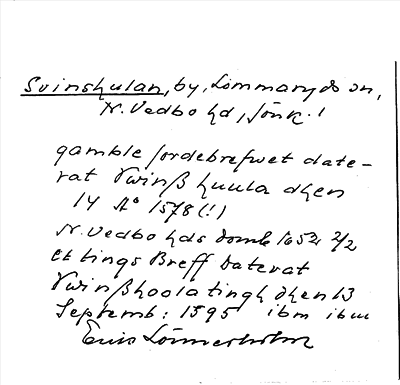 Svinshulan, by, Lommaryds sn,
N. Vedbo hd, Jönk. l
gamble jordebrefwet date-
rat Swinß huula dhen
14 A° 1578 (!)
N. Vedbo hds domb 1652 2/2
Et tings Breff Daterat
Swinßhoola tingh dhen 13
Septemb: 1595 ibm ibm